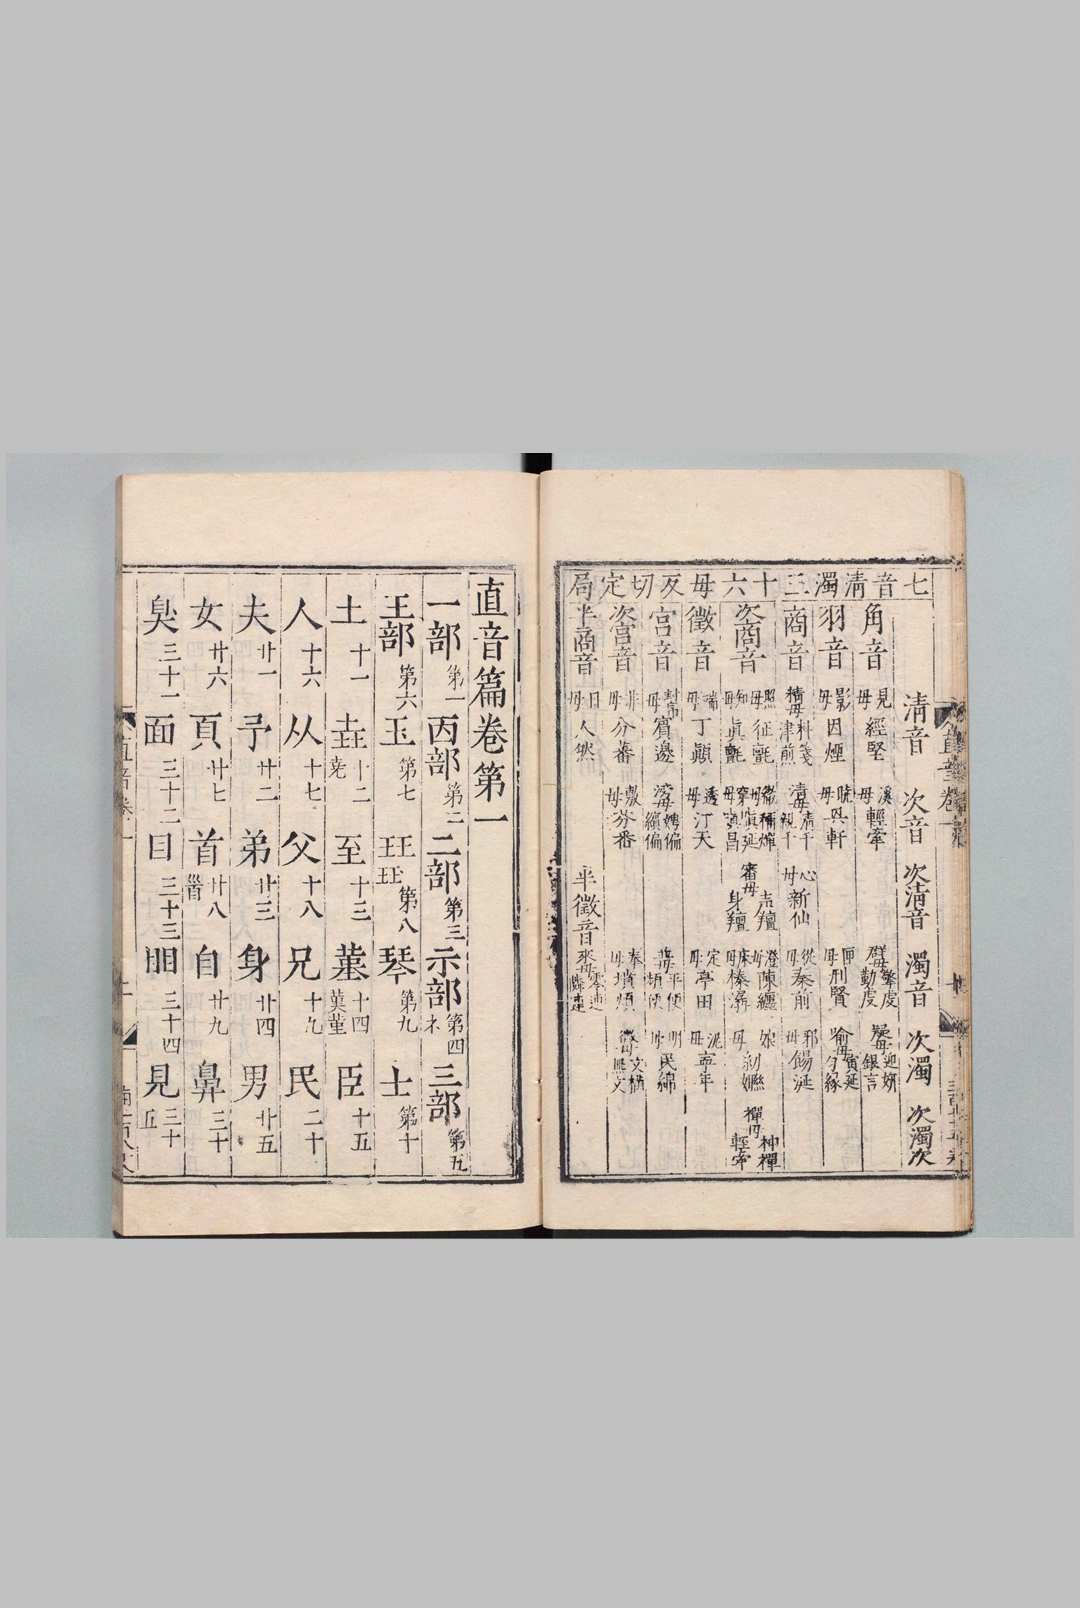 七音清濁三十六母反切定局
清音 次音 次清音 濁音 次濁 次濁次
角音 見母 經堅 溪母 輕牽 群母 勤虔 疑母 銀言
羽音 影母 因煙 曉母 軒 匣母 刑賢 喻母 寅延 勻緣
商音 精母 津煎 清母 清千 親千 心母 新仙 從母 秦前 邪母 餳涎
次商音 照母 征氈 知母 眞氈 穿母 昌 審母 聲羶 身羶 澄母 陳纏 床母 榛潺 娘母 禪母 神禪
徵音 端母 丁顚 透母 汀天 定母 亭田 泥母 寧年
宮音 幫母 賓邊 滂母 娉偏 繽偏 並母 平便 頻便 明母 民綿
次宮音 非母 分蕃 敷母 芬番 奉母 墳煩 微母 文樠
半商音 日母 人然 半徵音 來母 零連 鄰連
直音篇卷第一
一部第一 丙部第二 二部第三 示部礻第四 三部第五
王部第六 玉第七 玨第八 琴第九 士第十
土十一 垚十二 尭 至十三 堇十四 臣十五
人十六 从十七 父十八 兄十九 民二十
夫廿一 予廿二 弟廿三 身廿四 男廿五
女廿六 頁廿七 首廿八 自廿九 鼻三十
臭三十一 面三十二 目三十三 䀠三十四 見三十五